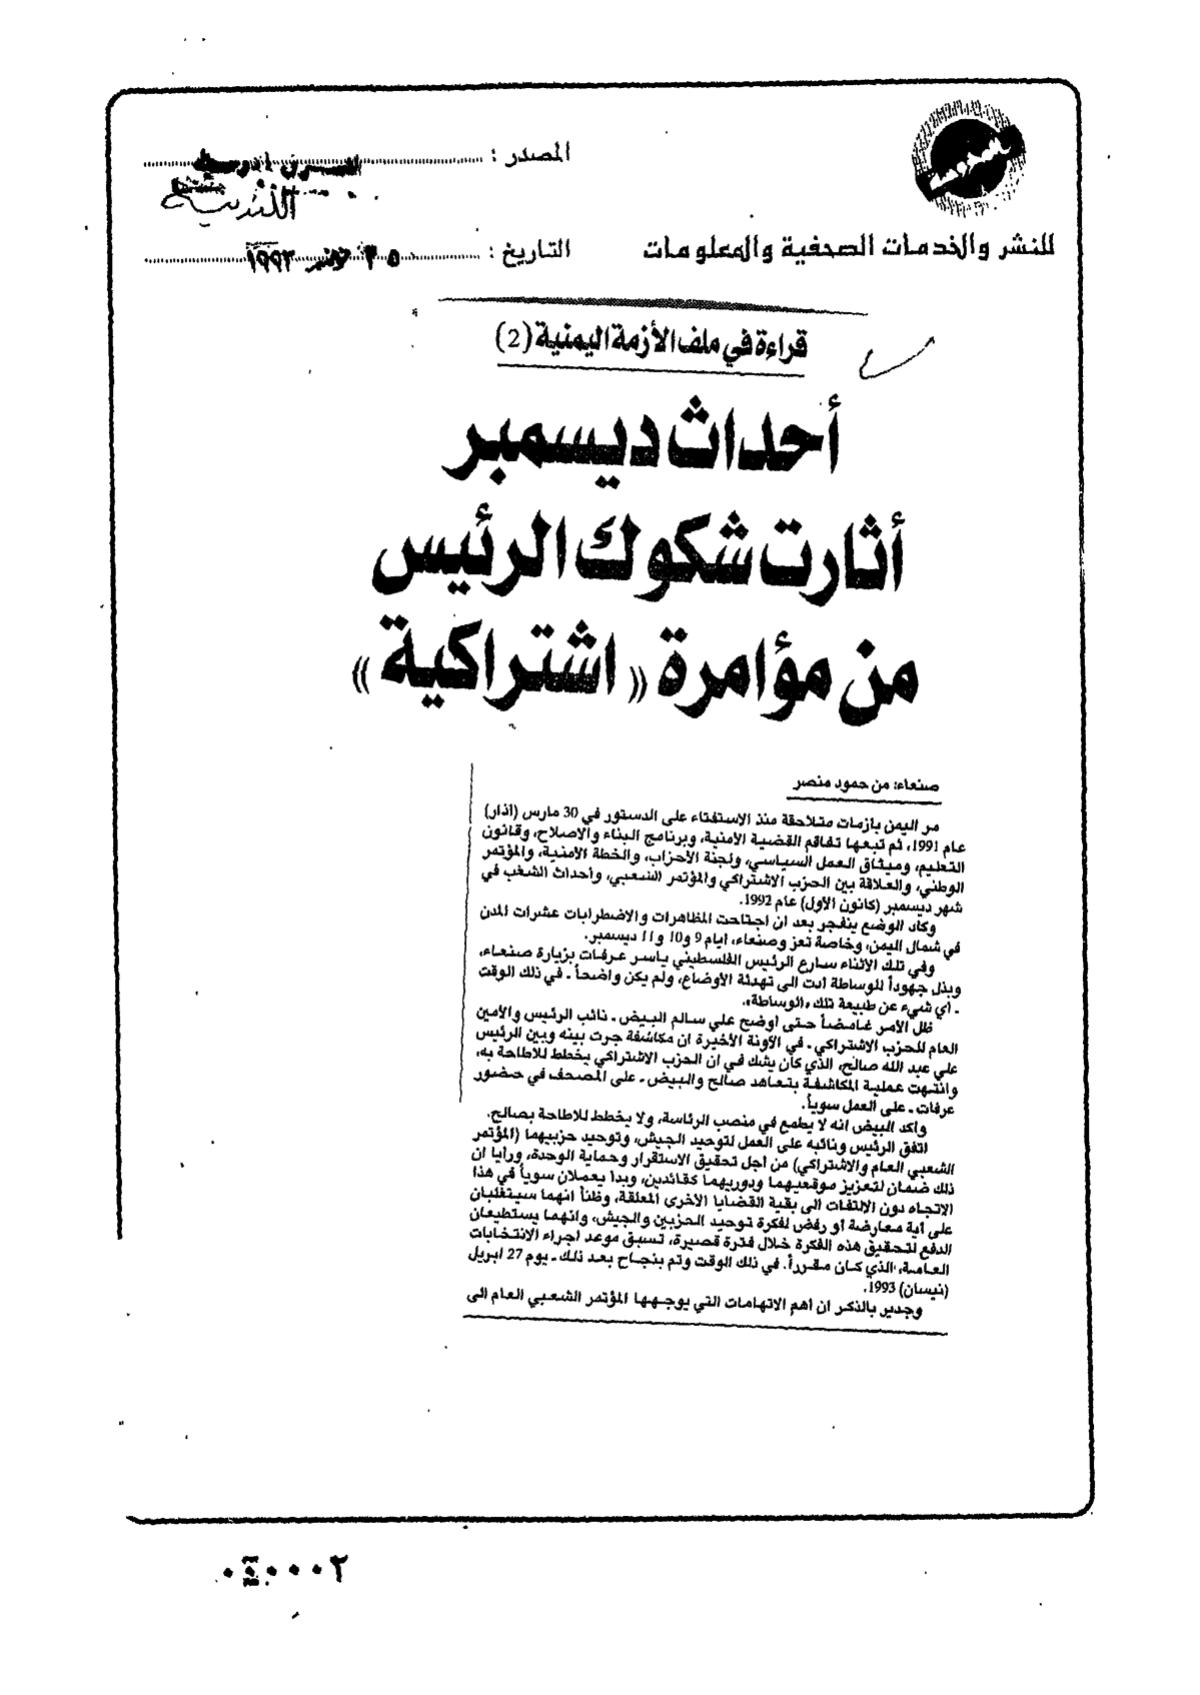 المصدر :
الشرق الأوسط
اللندنية
للنشر والخدمات الصحفية والمعلومات
التاريخ : ٢٥ نوفمبر ١٩٩٣
قراءة في ملف الأزمة اليمنية (2)
أحداث ديسمبر
أثارت شكوك الرئيس
من مؤامرة «اشتراكية»
صنعاء: من حمود منصر
مر اليمن بازمات متلاحقة منذ الاستفتاء على الدستور في 30 مارس (اذار)
عام 1991، ثم تبعها تفاقم القضية الامنية، وبرنامج البناء والاصلاح، وقانون
التعليم، وميثاق العمل السياسي، ولجنة الأحزاب، والخطة الأمنية، والمؤتمر
الوطني، والعلاقة بين الحزب الاشتراكي والمؤتمر الشعبي، وأحداث الشغب في
شهر ديسمبر (كانون الأول) عام 1992.
وكاد الوضع ينفجر بعد ان اجتاحت المظاهرات والاضطرابات عشرات المدن
في شمال اليمن، وخاصة تعز وصنعاء، ايام 9 و10 و11 ديسمبر.
وفي تلك الاثناء سارع الرئيس الفلسطيني ياسر عرفات بزيارة صنعاء،
وبذل جهوداً للوساطة ادت الى تهدئة الأوضاع، ولم يكن واضحاً ـ في ذلك الوقت
ـ أي شيء عن طبيعة تلك «الوساطة».
ظل الأمر غامضاً حتى اوضح علي سالم البيض ـ نائب الرئيس والأمين
العام للحزب الاشتراكي ـ في الآونة الأخيرة ان مكاشفة جرت بينه وبين الرئيس
علي عبد الله صالح، الذي كان يشك في ان الحزب الاشتراكي يخطط للاطاحة به،
وانتهت عملية المكاشفة بتعاهد صالح والبيض ـ على المصحف في حضور
عرفات ـ على العمل سوياً.
واكد البيض انه لا يطمع في منصب الرئاسة، ولا يخطط للاطاحة بصالح.
اتفق الرئيس ونائبه على العمل لتوحيد الجيش، وتوحيد حزبيهما (المؤتمر
الشعبي العام والاشتراكي) من اجل تحقيق الاستقرار وحماية الوحدة، ورأيا ان
ذلك ضمان لتعزيز موقعيهما ودوريهما كقائدين، وبدا يعملان سوياً في هذا
الاتجاه دون الالتفات الى بقية القضايا الاخرى المعلقة، وظنا انهما سيتغلبان
على أية معارضة أو رفض لفكرة توحيد الحزبين والجيش، وانهما يستطيعان
الدفع لتحقيق هذه الفكرة خلال فترة قصيرة، تسبق موعد اجراء الانتخابات
العامة، الذي كان مقرراً. في ذلك الوقت وتم بنجاح بعد ذلك ـ يوم 27 ابريل
(نيسان) 1993.
وجدير بالذكر ان أهم الاتهامات التي يوجهها المؤتمر الشعبي العام الى